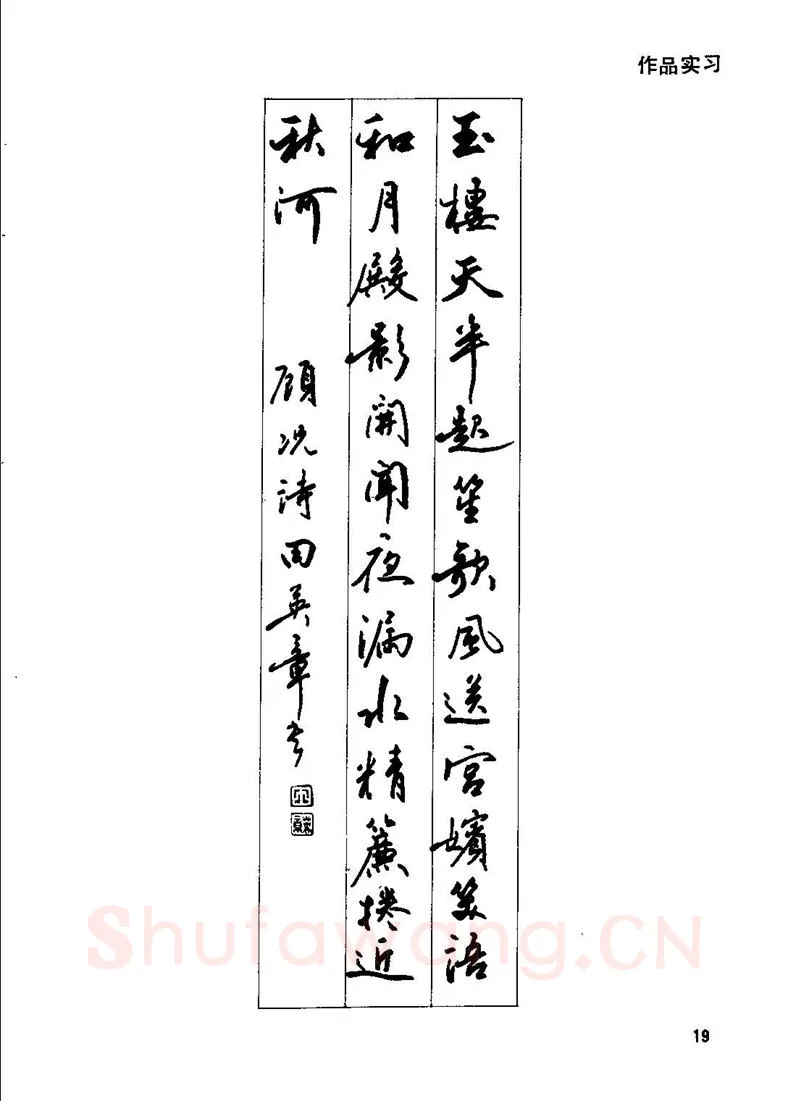 作品实习
玉樓天半起笙歌風送宫嬪笑語
和月殿影開聞夜漏水精簾捲近
秋河
顾况诗田英章书
Shufawang.CN
19